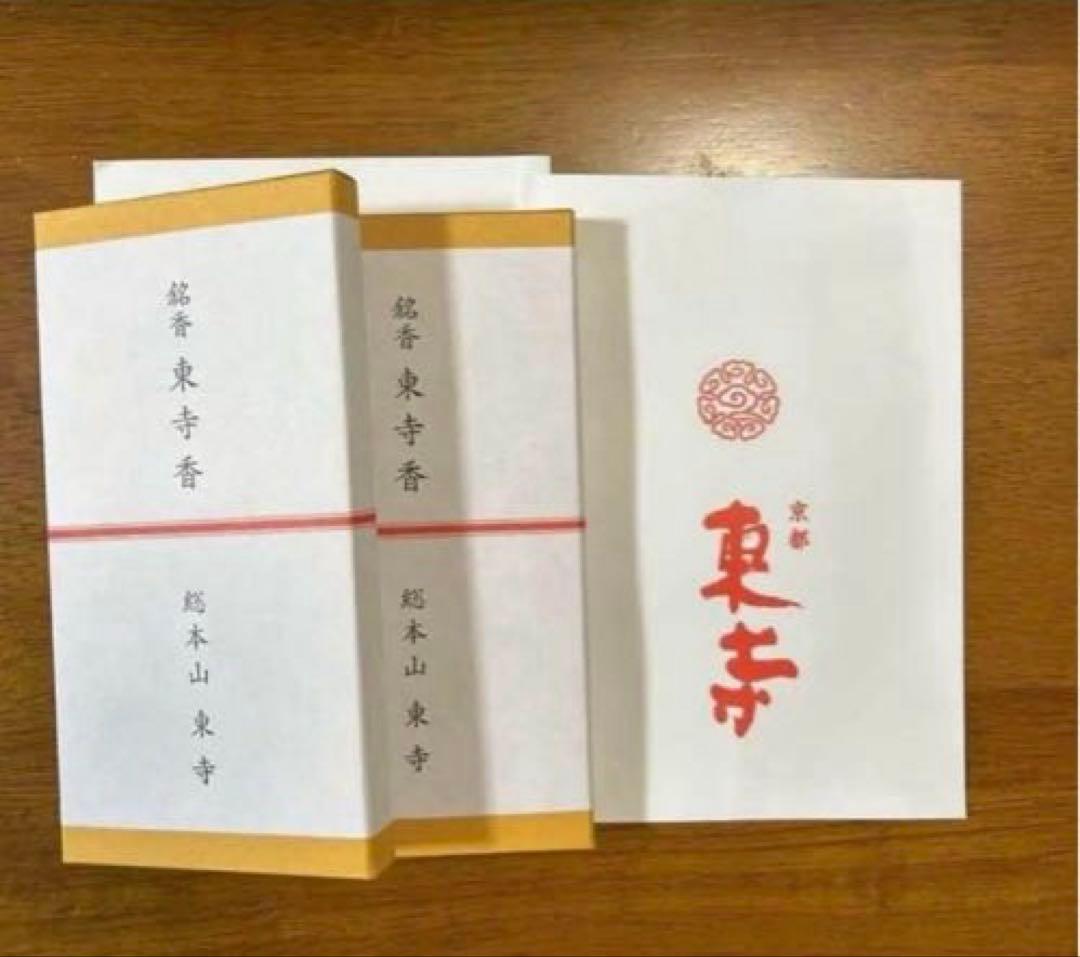 銘香 東寺香
総本山 東寺
銘香 東寺香
総本山 東寺
京都
東寺